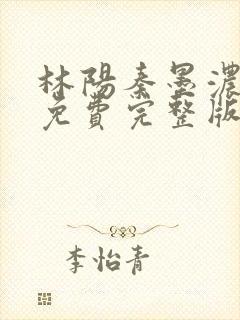 林陽秦墨濃
免費完整版
李怡青